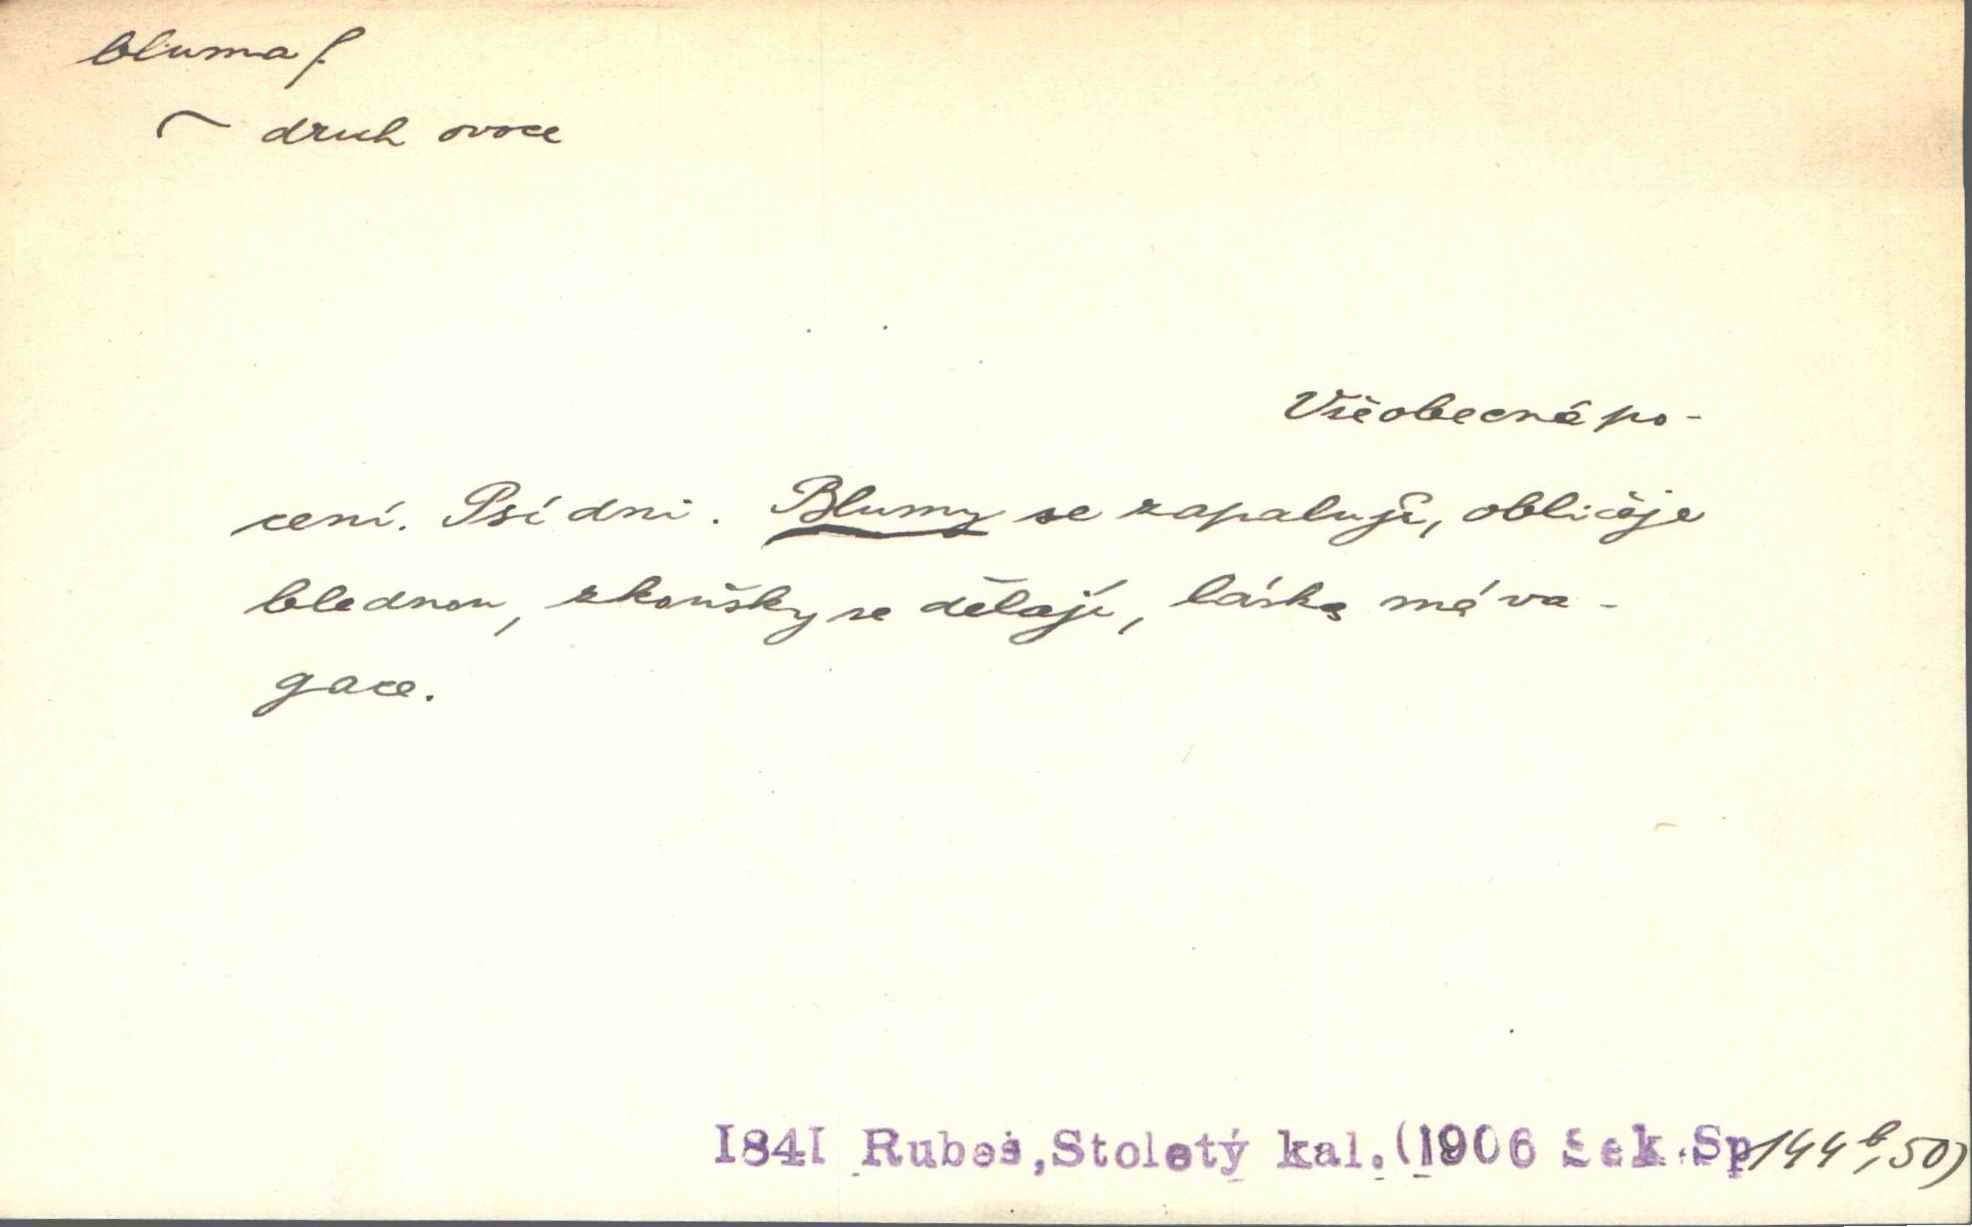 bluma f.
~ druh ovoce
Všeobecné po-
cení. Psí dni. Blumy se zapalují, obličeje
blednou, zkoušky se dělají, láska má va-
gace.
1841 Rubeš, Stoletý kal. (1906 Sek. Sp 144 b, 50)